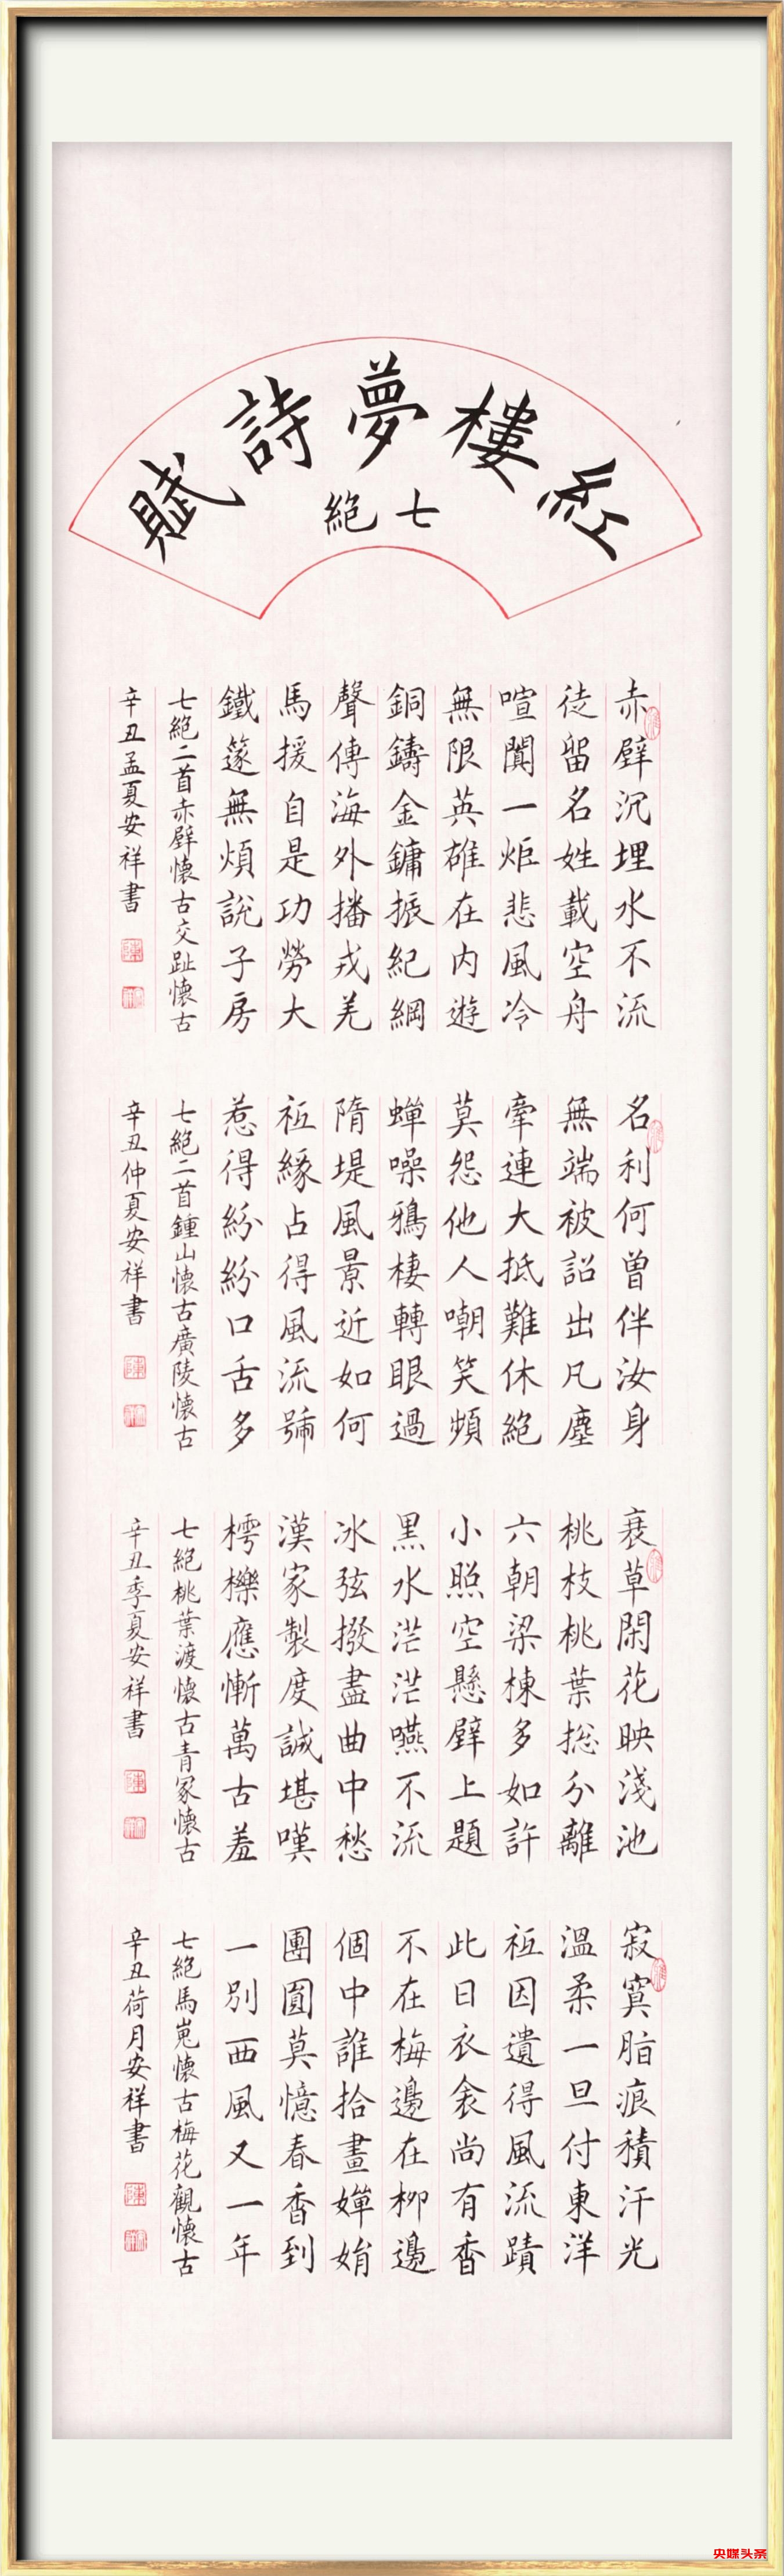 紅樓夢詩賦
七絕
赤壁沉埋水不流
徒留名姓載空舟
喧闐一炬悲風冷
無限英雄在內遊
銅鑄金鏞振紀綱
聲傳海外播戎羌
馬援自是功勞大
鐵篴無煩說子房
七絕二首赤壁懷古交趾懷古
辛丑孟夏安祥書
名利何曾伴汝身
無端被詔出凡塵
牽連大抵難休絕
莫怨他人嘲笑頻
蟬噪鴉棲轉眼過
隋堤風景近如何
祇緣占得風流號
惹得紛紛口舌多
七絕二首鍾山懷古廣陵懷古
辛丑仲夏安祥書
衰草閑花映淺池
桃枝桃葉総分離
六朝梁棟多如許
小照空懸壁上題
黑水茫茫嚥不流
冰弦撥盡曲中愁
漢家製度誠堪嘆
樗櫟應慚萬古羞
七絕桃葉渡懷古青冢懷古
辛丑季夏安祥書
寂寞脂痕積汗光
溫柔一旦付東洋
祇因遺得風流蹟
此日衣衾尚有香
不在梅邊在柳邊
個中誰拾畫嬋娟
團圓莫憶春香到
一別西風又一年
七絕馬嵬懷古梅花觀懷古
辛丑荷月安祥書
央媒头条